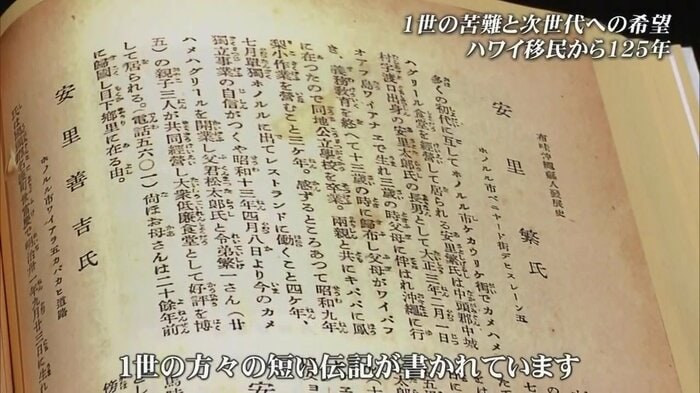 1世の苦難と次世代への希望
ハワイ移民から125年
布哇沖縄縣人發展史
安里繁氏
ホノルル市ベニヤード街デヒスレーン五
多くの初代に互してホノルル市ケカウリケ街でカメハメ
ハグリール食堂を經營して居られる安里繁氏は中頭郡中城
村字渡口出身の安里太郎氏の長男として大正三年二月一日
オアフ島ワイアナヱで生れ三歳の時父母に伴はれ沖繩に行
き、義務教育を終へて十三歳の時に歸布し父母がワイパフ
に在つたので同地公立學校を卒業。兩親と共にキパパに鳳
梨小作業を營むこと三ケ年。感ずるところあつて昭和九年
七月單獨ホノルルに出てレストランドに働くこと四ケ年、
獨立事業の自信がつくや昭和十三年四月八日より今のカメ
ハメハグリールを開業し父君松太郎氏と令弟繁一さん（廿
五）の親子三人が共同經營し大衆低廉食堂として好評を博
して居られる。（電話五六〇一）尙ほお母さんは二十餘年前
に歸國し目下鄕里に在る由。
安里善吉氏
ホノルル市ワイアラ五カパカヒ道路
1世の方々の短い伝記が書かれています